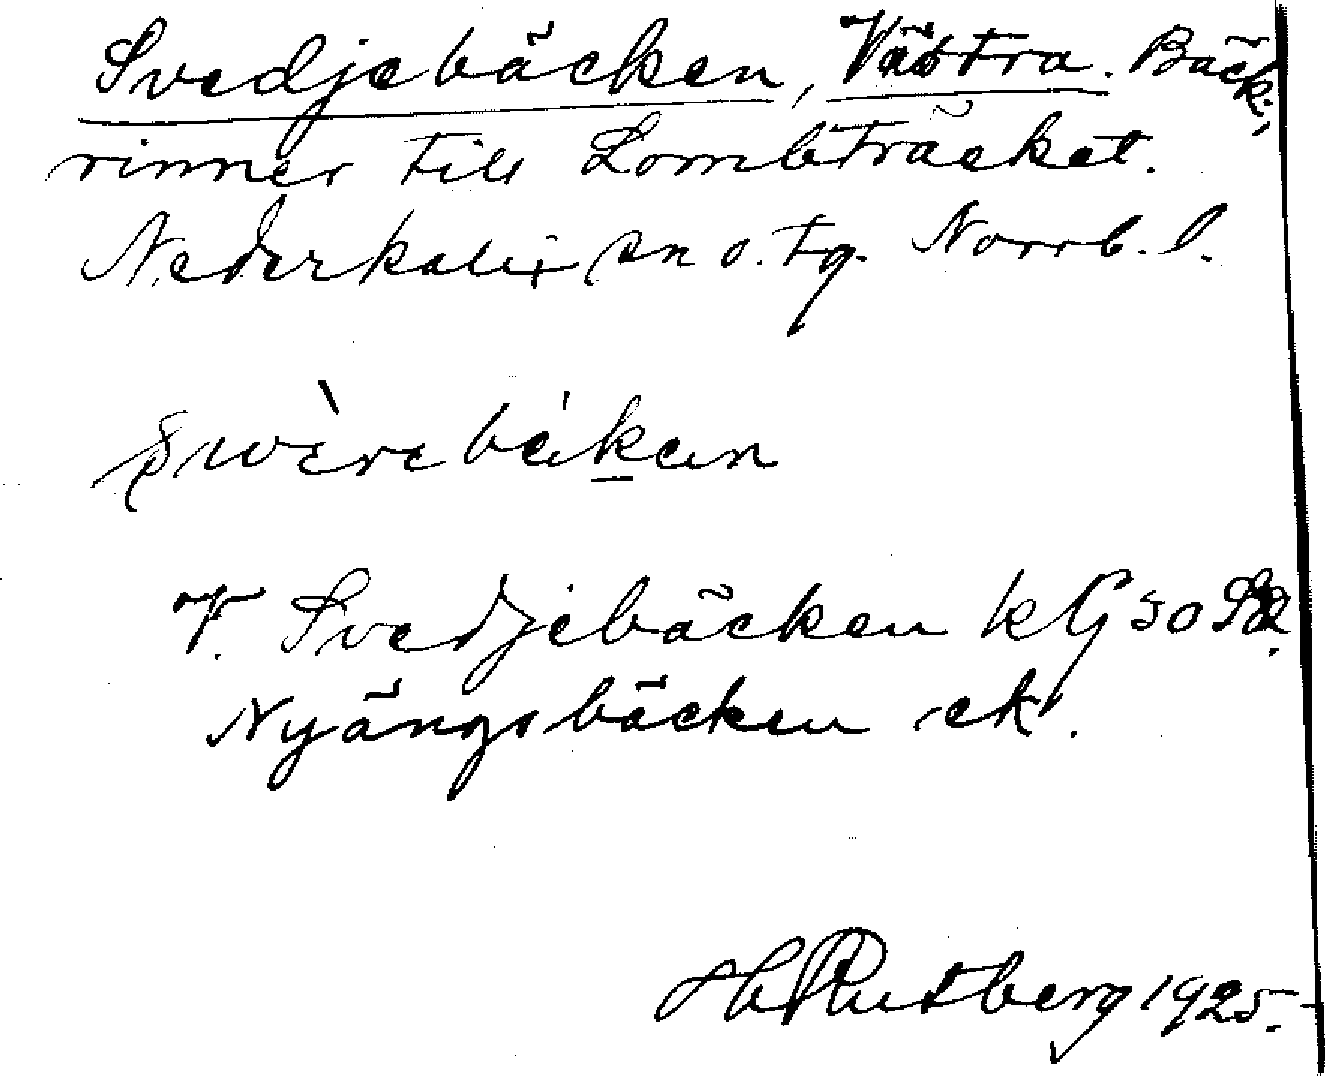 Svedjebäcken, Västra. Bäck;
rinner till Lombträsket.
Nederkalix sn o. tg. Norrb. l.
V. Svedjebäcken kG 50
Nyängsbäcken ek.
Rutberg 1925.